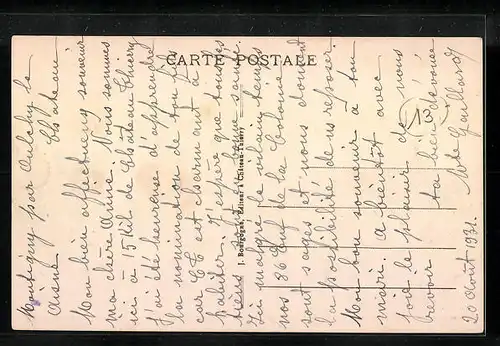 CARTE POSTALE
J. Bourgogne, Editeur à Château-Thierry
Montigny par Oulchy le
Château
Aisne
Mon bien affectueux souvenir
ma chère Nous sommes
ici à 15 Kil. de Château Thierry
J'ai été heureuse d'apprendre
la nomination de ton fils
car est charmant à
habiter. J'espère que tous les
tiens sont en bonne santé.
Ici malgré le vilain temps
nos 36 Enf. de la Colonie
sont sages et nous donnent
la possibilité de ns reposer.
Mon bon souvenir à ton
mari. à bientôt avec
joie le plaisir de vous
revoir
ta bien dévouée
Mlle Gaillard
20 Août 1931.
13